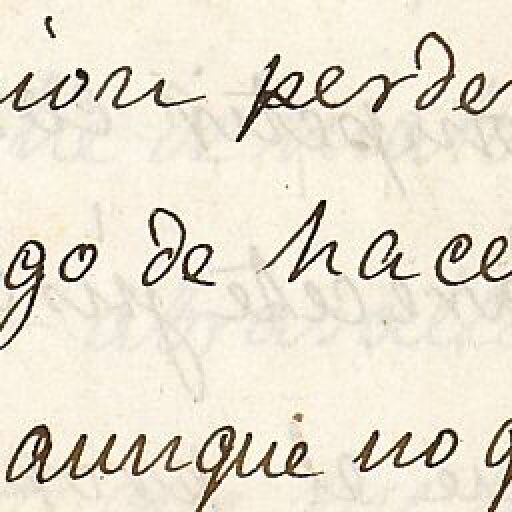 ion perder
go de hace
aunque no q